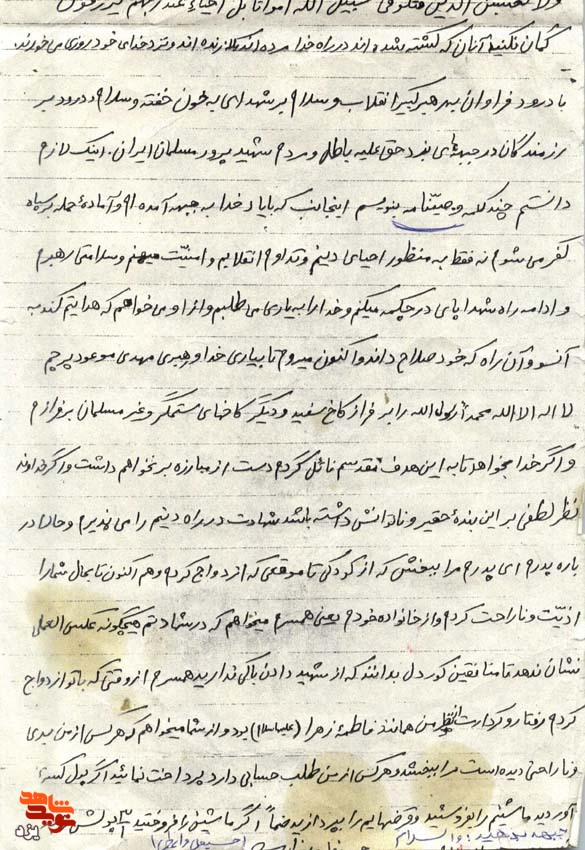 ولا تحسبن الذین قتلوا فی سبیل الله امواتا بل احیاء عند ربهم یرزقون
گمان نکنید آنان که کشته شده اند در راه خدا مرده اند بلکه زنده اند و نزد خدای خود روزی می خورند
با درود فراوان به رهبر کبیر انقلاب و سلام بر شهدای به خون خفته و سلام و درود بر
رزمندگان در جبهه های نبرد حق علیه باطل و مردم شهید پرور مسلمان ایران. اینک لازم
دانستم چند کلمه وصیتنامه بنویسم اینجانب که با یاد خدا به جبهه آمده ام و آماده حمله بر سپاه
کفر می شوم نه فقط به منظور احیای دینم و تداوم انقلابم و امنیت میهنم و سلامتی رهبرم
و ادامه راه شهدا پای در چکمه میکنم و خدا را به یاری می طلبم و از او می خواهم که هدایتم کند به
آنسو و آن راه که خود صلاح داند و اکنون میروم تا بیاری خدا و رهبری مهدی موعود پرچم
لا اله الا الله محمد رسول الله را بر فراز کاخ سفید و دیگر کاخهای ستمگر و غیر مسلمان برفرازم
و اگر خدا بخواهد تا به این هدف مقدسم نائل نگردم دست از مبارزه بر نخواهم داشت و اگر خداوند
نظر لطفی بر این بنده حقیر و ناتوانش داشته باشد شهادت در راه دینم را می پذیرم و حالا در
باره پدرم ای پدرم مرا ببخش که از کودکی تا موقعی که ازدواج کردم و هم اکنون تا بحال شما را
اذیت و ناراحت کردم و از خانواده خودم یعنی همسرم میخواهم که در شهادتم هیچگونه عکس العملی
نشان ندهد تا منافقین کور دل بدانند که از شهید دادن باکی ندارید همسرم از وقتی که با تو ازدواج
کردم رفتار و کردارت از نظر من همانند فاطمه زهرا (علیها سلام) بود و از شما میخواهم که هر کس از من بدی
و ناراحتی دیده است مرا ببخشد و هر کس از من طلب حسابی دارد پرداخت نمائید اگر پول کسری
آوردید ماشینم را بفروشید و قرضهایم را بپردازید ضمناً اگر ماشین را فروختید پولش
جبهه والسلام
شاهد
نوید